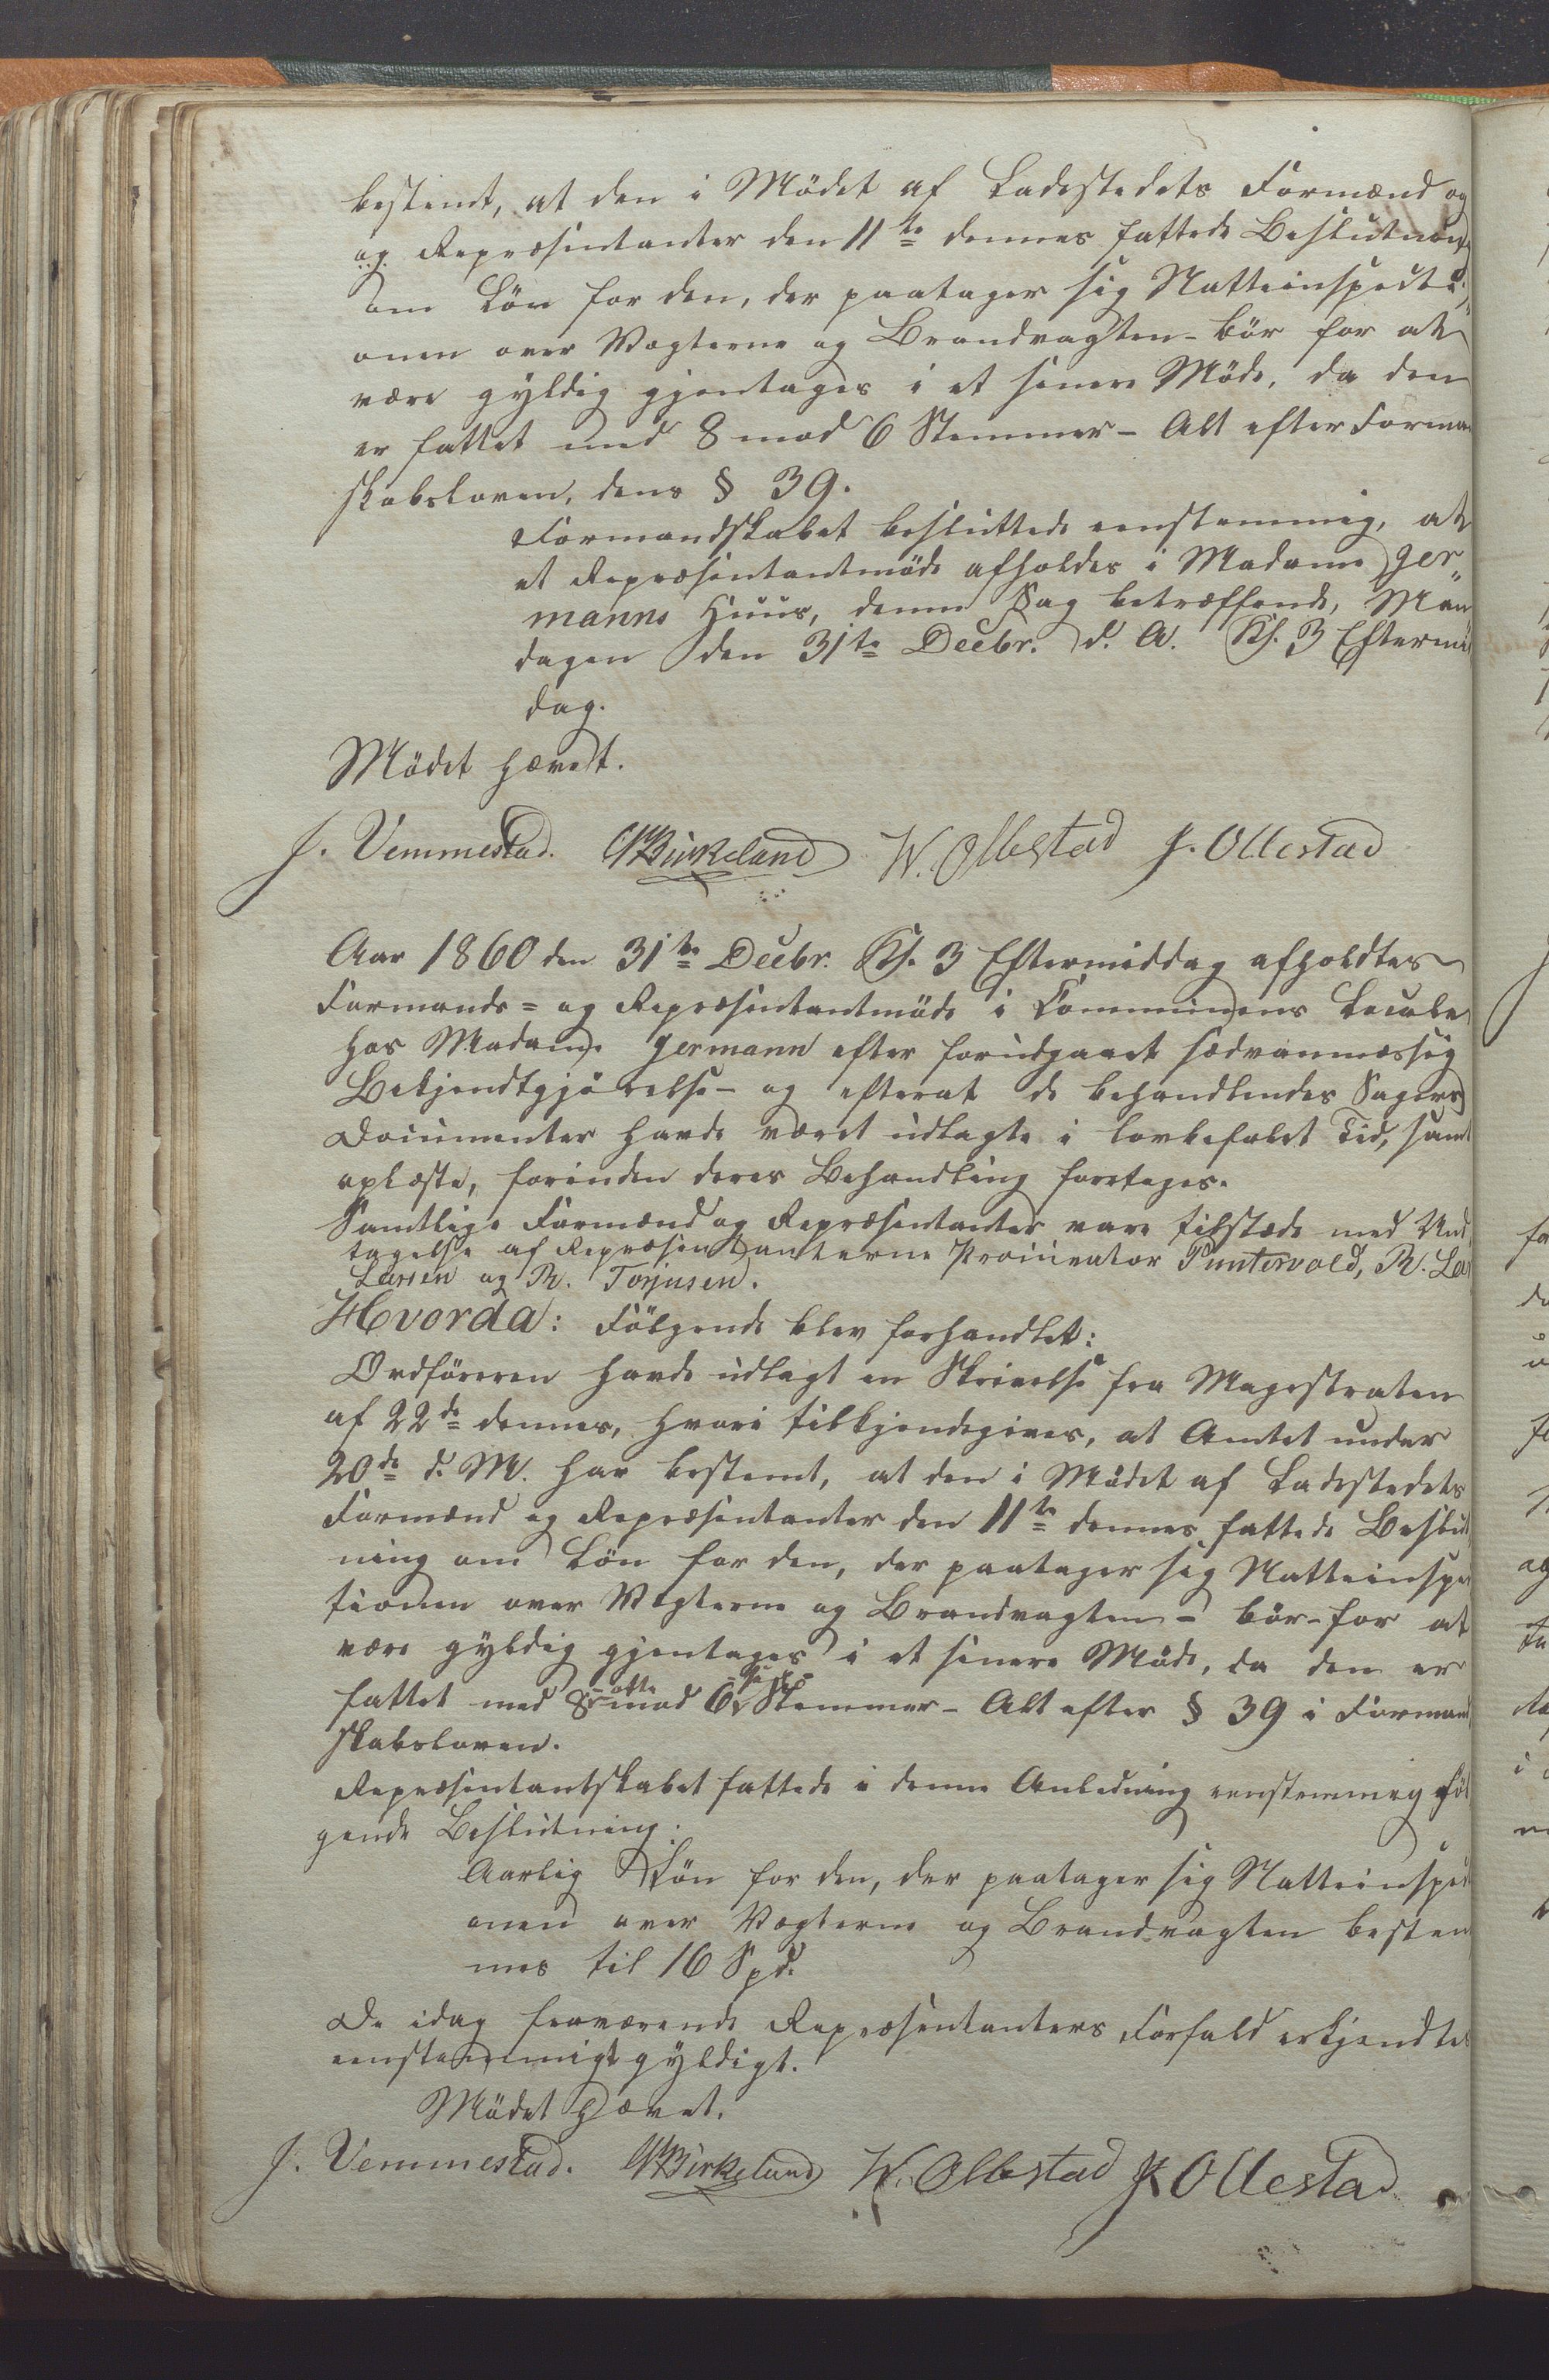 bestemt, at den i Mödet af Ladestedets Formænd og
og Repræsentanter den 11te dennes fattede Beslutning
om Lön for den, der paatager sig Natteinspecti„
onen over Vægterne og Brandvagten - bör for at
være gyldig gjentages i et senere Möde, da den
er fattet med 8 mod 6 Stemmer - Alt efter Formand
skabsloven, dens § 39.
Formandskabet besluttede eenstemmig, at
et Repræsentantmöde afholdes i Madame Ger„
manns Huus, denne Sag betræffende, Man
dagen den 31te Decbr. d. A. Kl. 3 Eftermid
dag.
Mödet hævet.
J. Vemmestad. Birkeland W. Ollestad J. Ollestad
Aar 1860 den 31te Decbr. Kl. 3 Eftermiddag afholdtes
Formands- og Repræsentantmöde i Communens Locale
hos Madame Germann efter forudgaaet sædvanmæssig
Bekjendtgjörelse - og efterat de behandlendes Sagers
Documenter havde været udlagte i lovbefalet Tid, samt
oplæste, forinden deres Behandling foretages.
Samtlige Formænd og Repræsentanter vare tilstæde med Und
tagelse af Repræsentanterne Procurator Puntervold, R. La
Larsen og R. Torjusen.
Hvorda: Fölgende blev forhandlet:
Ordföreren havde udlagt en Skrivelse fra Magistraten
af 22de dennes, hvori tilkjendegives, at Amtet under
20de d. M. har bestemt, at den i Mödet af Ladestedets
Formænd og Repræsentanter den 11te dennes fattede Beslut
ning om Lön for den, der paatager sig Natteinspec
tionen over Vægterne og Brandvagten - bör - for at
være gyldig gjentages i et senere Möde, da den er
fattet med 8 - otte - mod 6 - sex - Stemmer - Alt efter § 39 i Formand
skabsloven.
Repræsentantskabet fattede i denne Anledning eenstemmig föl
gende Beslutning:
Aarlig Lön for den, der paatager sig Natteinspecti
onen over Vægterne og Brandvagten bestem
mes til 16 Spd.
De idag fraværende Repræsentanters Forfald erkjendtes
eenstemmigt gyldigt.
Mödet hævet.
J. Vemmestad. Birkeland W. Ollestad J. Ollestad